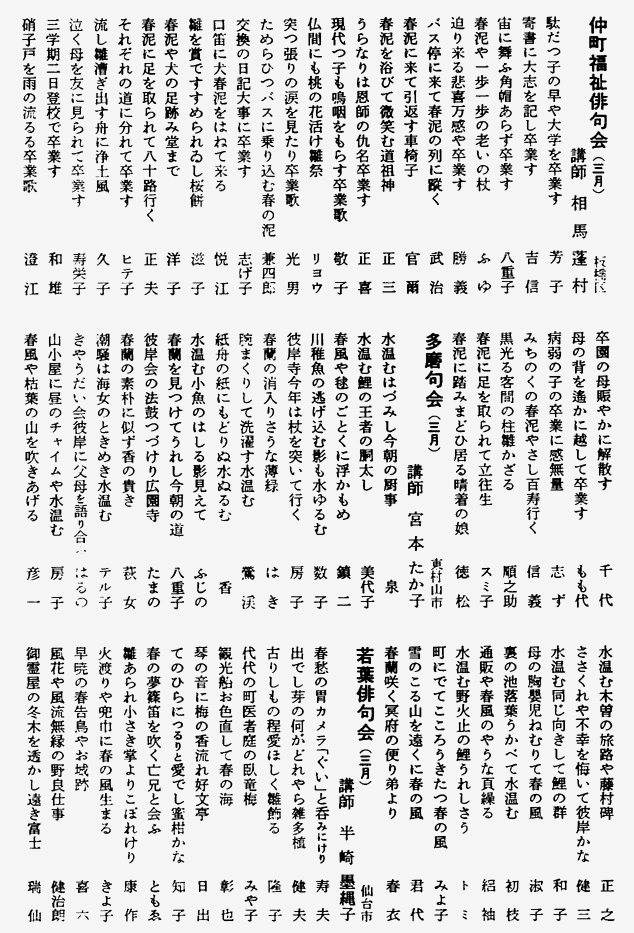 仲町福祉俳句会（三月）
講師 相馬蓬村
板橋区
駄だつ子の早や大学を卒業す 芳子
寄書に大志を記し卒業す 吉信
宙に舞ふ角帽あらず卒業す 八重子
春泥や一歩一歩の老いの杖 ふゆ
迫り来る悲喜万感や卒業す 勝義
バス停に来て春泥の列に蹤く 武治
春泥に来て引返す車椅子 官爾
春泥を浴びて微笑む道祖神 正三
うらなりは恩師の仇名卒業す 正喜
現代つ子も嗚咽をもらす卒業歌 敬子
仏間にも桃の花活け雛祭 リヨウ
突つ張りの涙を見たり卒業歌 光男
ためらひつバスに乗り込む春の泥 兼四郎
交換の日記大事に卒業す 志げ子
口笛に犬春泥をはねて来る 悦江
雛を賞ですすめられゐし桜餅 滋子
春泥や犬の足跡み堂まで 洋子
春泥に足を取られて八十路行く 正夫
それぞれの道に分れて卒業す ヒテ子
流し雛漕ぎ出す舟に浄土風 久子
泣く母を友に見られて卒業す 寿栄子
三学期二日登校で卒業す 和雄
硝子戸を雨の流るる卒業歌 澄江
卒園の母賑やかに解散す 千代
母の背を遙かに越して卒業す もも代
病弱の子の卒業に感無量 志ず
みちのくの春泥やさし百寿行く 信義
黒光る客間の柱雛かざる 順之助
春泥に足を取られて立往生 スミ子
春泥に踏みまどひ居る晴着の娘 徳松
多磨句会（三月）
講師 宮本たか子
東村山市
水温むはづみし今朝の厨事 泉
水温む鯉の王者の胴太し 美代子
春風や毬のごとくに浮かもめ 鎮二
川稚魚の逃げ込む影も水ゆるむ 数子
彼岸寺今年は杖を突いて行く 房子
春蘭の消入りさうな薄緑 はき
腕まくりして洗濯す水温む 鶯渓
紙舟の紙にもどりぬ水ぬるむ 香
水温む小魚のはしる影見えて ふじの
春蘭を見つけてうれし今朝の道 八重子
彼岸会の法鼓つづけり広園寺 たまの
春蘭の素朴に似ず香の貴き 萩女
潮騒は海女のときめき水温む テル子
きやうだい会彼岸に父母を語り合 はるの
山小屋に昼のチャイムや水温む 房子
春風や枯葉の山を吹きあげる 彦一
水温む木曽の旅路や藤村碑 正之
ささくれや不幸を悔いて彼岸かな 健三
水温む同じ向きして鯉の群 和子
母の胸嬰児ねむりて春の風 淑子
裏の池落葉うかべて水温む 初枝
通販や春風のやうな頁繰る 絽袖
水温む野火止の鯉うれしさう トミ
町にでてこころうきたつ春の風 みよ子
雪のこる山を遠くに春の風 君代
春蘭咲く冥府の便り弟より 春衣
若葉俳句会（三月）
講師 半崎墨縄子
仙台市
春愁の胃カメラ「ぐい」と呑みにけり 寿夫
出でし芽の何がどれやら雑多植 健夫
古りしもの程愛ほしく雛飾る 隆子
代代の町医者庭の臥竜梅 みや子
観光船お色直して春の海 彰也
琴の音に梅の香流れ好文亭 日出
てのひらにつるりと愛でし蜜柑かな 知子
春の夢篠笛を吹く亡兄と会ふ ともゑ
雛あられ小さき掌よりこぼれけり 康作
火渡りや兜巾に春の風生まる きよ子
早暁の春告鳥やお城跡 喜六
風花や風流無縁の野良仕事 健治朗
御霊屋の冬木を透かし遠き富士 瑞仙